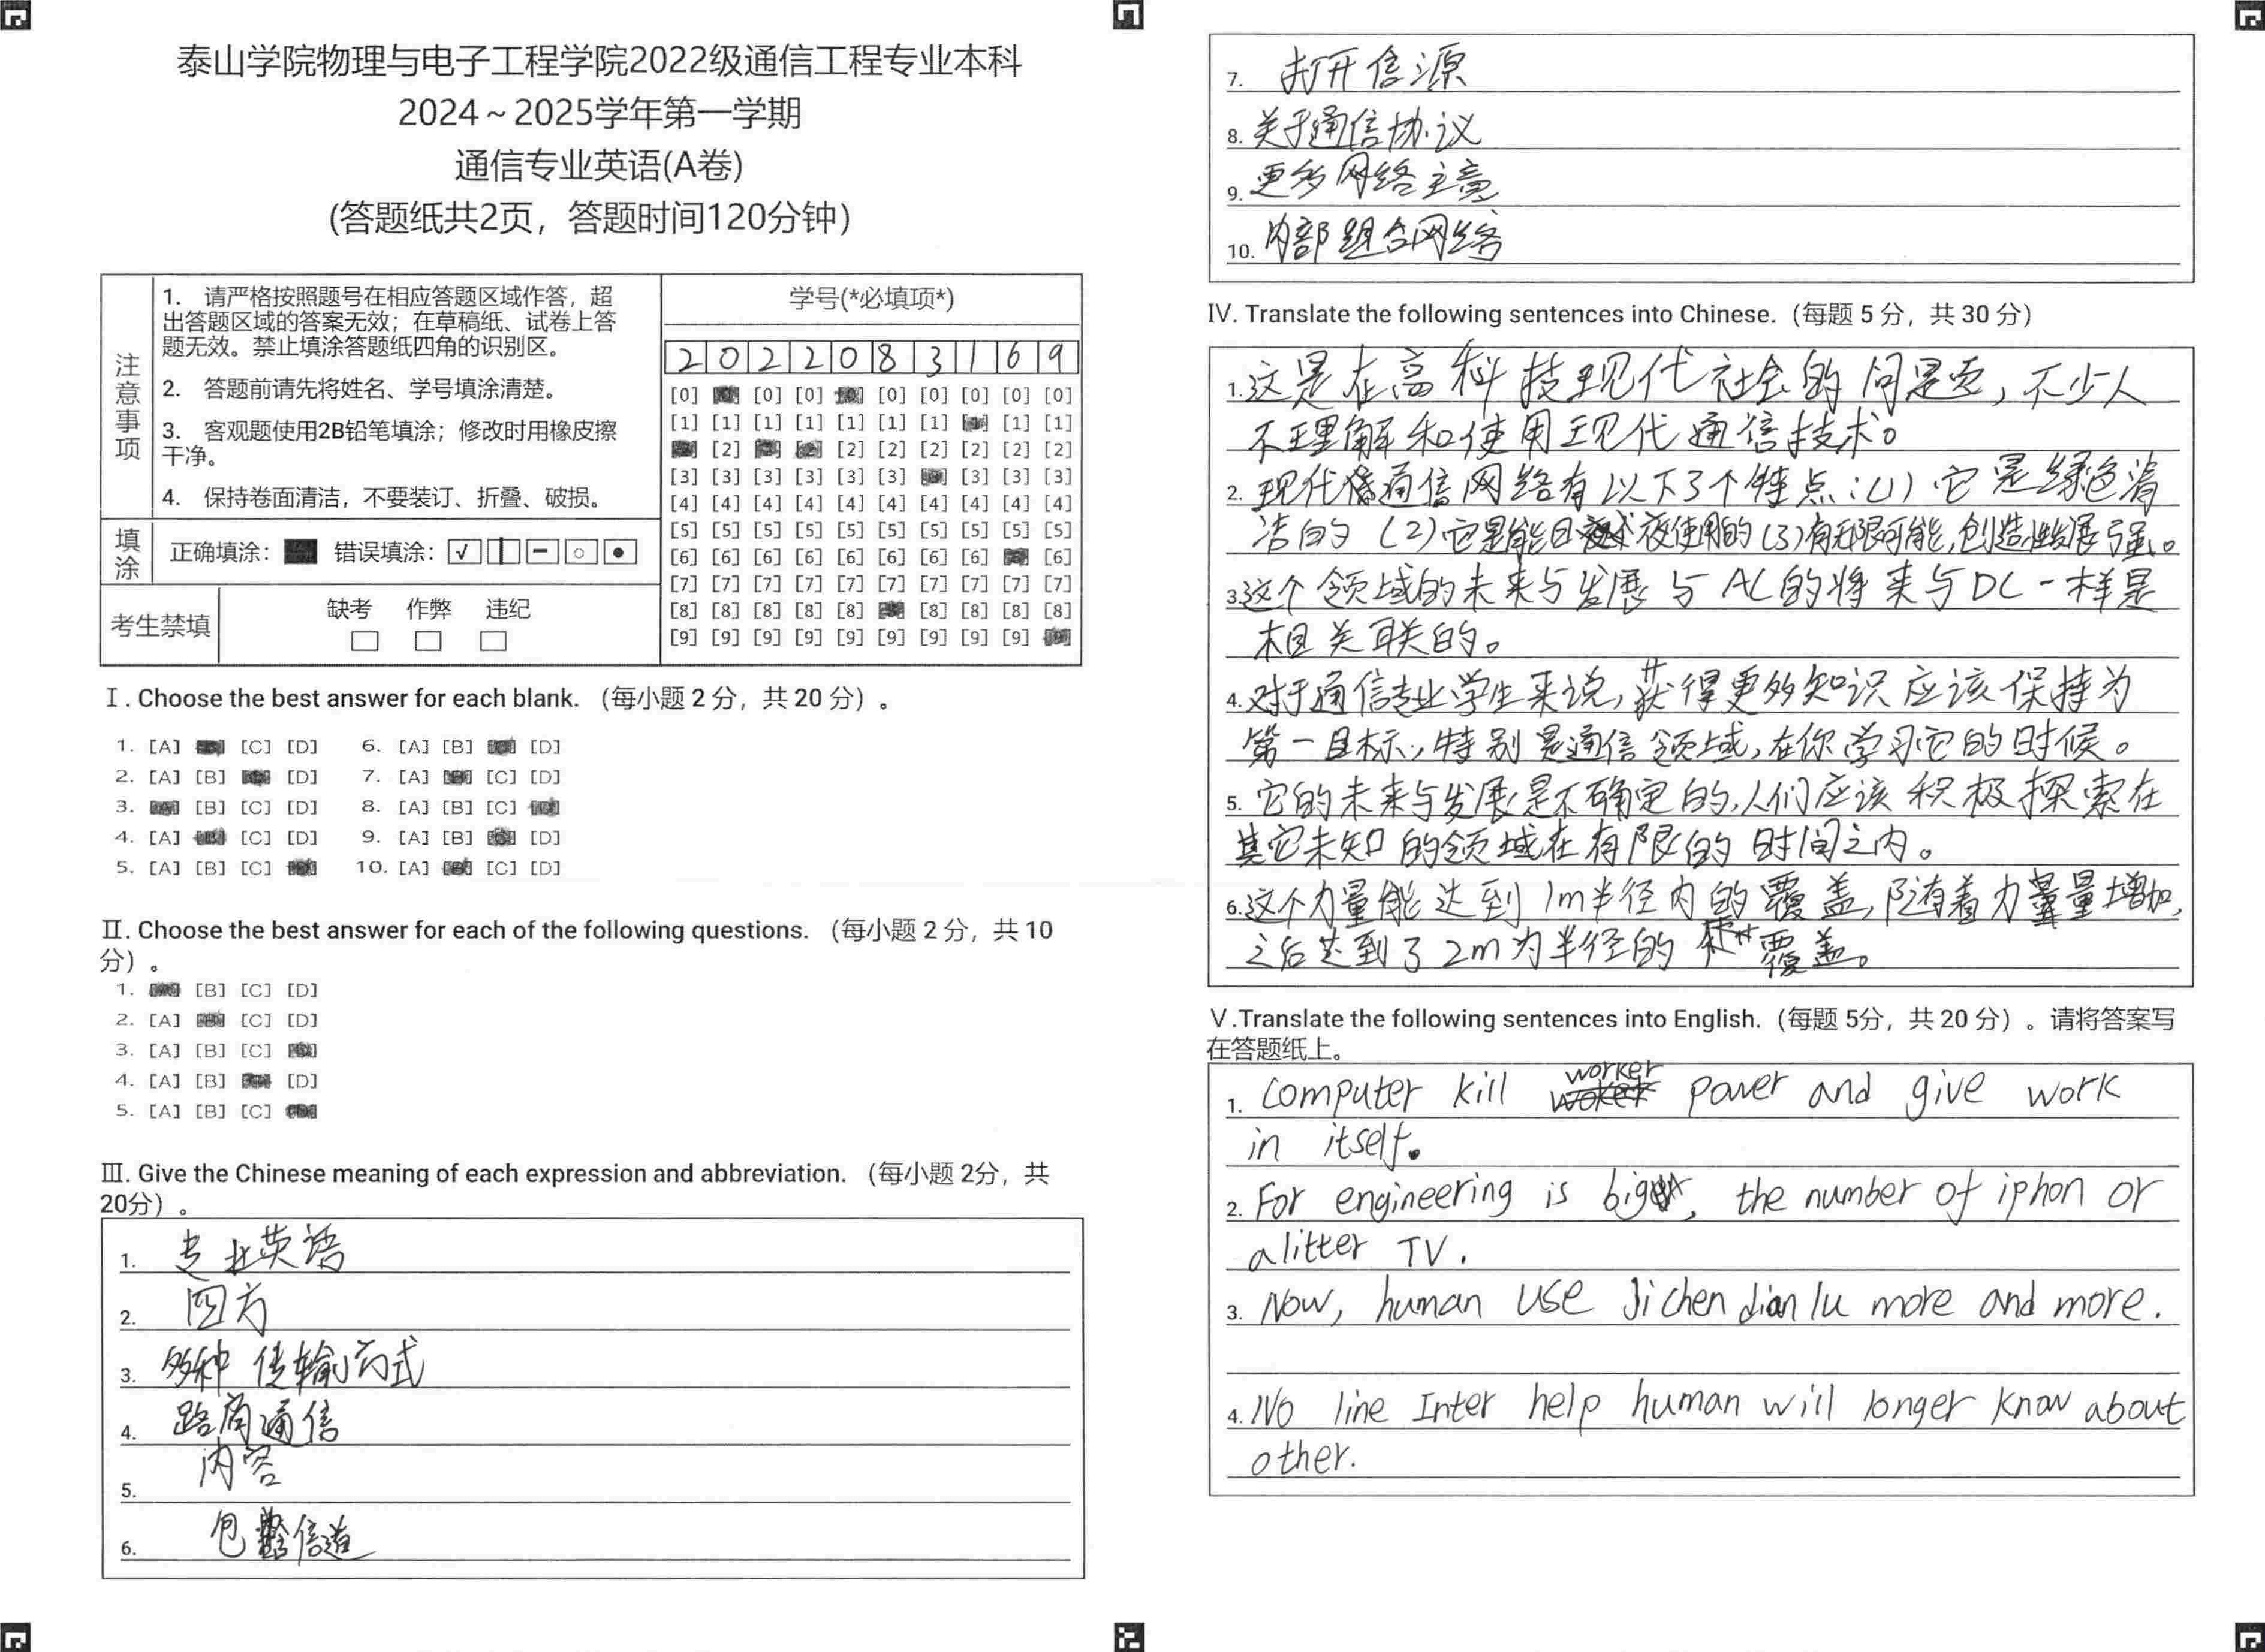 泰山学院物理与电子工程学院2022级通信工程专业本科
2024～2025学年第一学期
通信专业英语(A卷)
(答题纸共2页，答题时间120分钟)
注意事项
1. 请严格按照题号在相应答题区域作答，超
出答题区域的答案无效；在草稿纸、试卷上答
题无效。禁止填涂答题纸四角的识别区。
2. 答题前请先将姓名、学号填涂清楚。
3. 客观题使用2B铅笔填涂；修改时用橡皮擦
干净。
4. 保持卷面清洁，不要装订、折叠、破损。
填涂
正确填涂： 错误填涂：
考生禁填
缺考 作弊 违纪
学号(*必填项*)
2 0 2 2 0 8 3 1 6 9
[0] [0] [0] [0] [0] [0] [0] [0]
[1] [1] [1] [1] [1] [1] [1] [1] [1]
[2] [2] [2] [2] [2] [2] [2]
[3] [3] [3] [3] [3] [3] [3] [3] [3]
[4] [4] [4] [4] [4] [4] [4] [4] [4] [4]
[5] [5] [5] [5] [5] [5] [5] [5] [5] [5]
[6] [6] [6] [6] [6] [6] [6] [6] [6]
[7] [7] [7] [7] [7] [7] [7] [7] [7] [7]
[8] [8] [8] [8] [8] [8] [8] [8] [8]
[9] [9] [9] [9] [9] [9] [9] [9] [9]
Ⅰ. Choose the best answer for each blank. （每小题 2 分，共 20 分）。
1. [A] [C] [D] 6. [A] [B] [D]
2. [A] [B] [D] 7. [A] [C] [D]
3. [B] [C] [D] 8. [A] [B] [C]
4. [A] [C] [D] 9. [A] [B] [D]
5. [A] [B] [C] 10. [A] [C] [D]
Ⅱ. Choose the best answer for each of the following questions. （每小题 2 分，共 10
分）。
1. [B] [C] [D]
2. [A] [C] [D]
3. [A] [B] [C]
4. [A] [B] [D]
5. [A] [B] [C]
Ⅲ. Give the Chinese meaning of each expression and abbreviation. （每小题 2分，共
20分）。
1. 专业英语
2. 四方
3. 多种传输方式
4. 路局通信
5. 内容
6. 包 信道
7. 打开信源
8. 关于通信协议
9. 更多网络主意
10. 内部组合网络
Ⅳ. Translate the following sentences into Chinese.（每题 5 分，共 30 分）
1. 这是在高科技现代社会的问题，不少人
不理解和使用现代通信技术。
2. 现代通信网络有以下3个特点：(1) 它是绿色清
洁的 (2) 它是能日夜使用的 (3) 有无限可能，创造性发展强。
3. 这个领域的未来与发展与AC的将来与DC一样是
相关联的。
4. 对于通信专业学生来说，获得更多知识应该保持为
第一目标，特别是通信领域，在你学习它的时候。
5. 它的未来与发展是不确定的，人们应该积极探索在
其它未知的领域在有限的时间之内。
6. 这个力量能达到1m半径内的覆盖，随着力量增加，
之后达到了2m为半径的覆盖。
Ⅴ.Translate the following sentences into English.（每题 5分，共 20 分）。请将答案写
在答题纸上。
1. Computer kill worker power and give work
in itself.
2. For engineering is big, the number of iphon or
alitter TV.
3. Now, human use Jichen dian lu more and more.
4. No line Inter help human will longer know about
other.